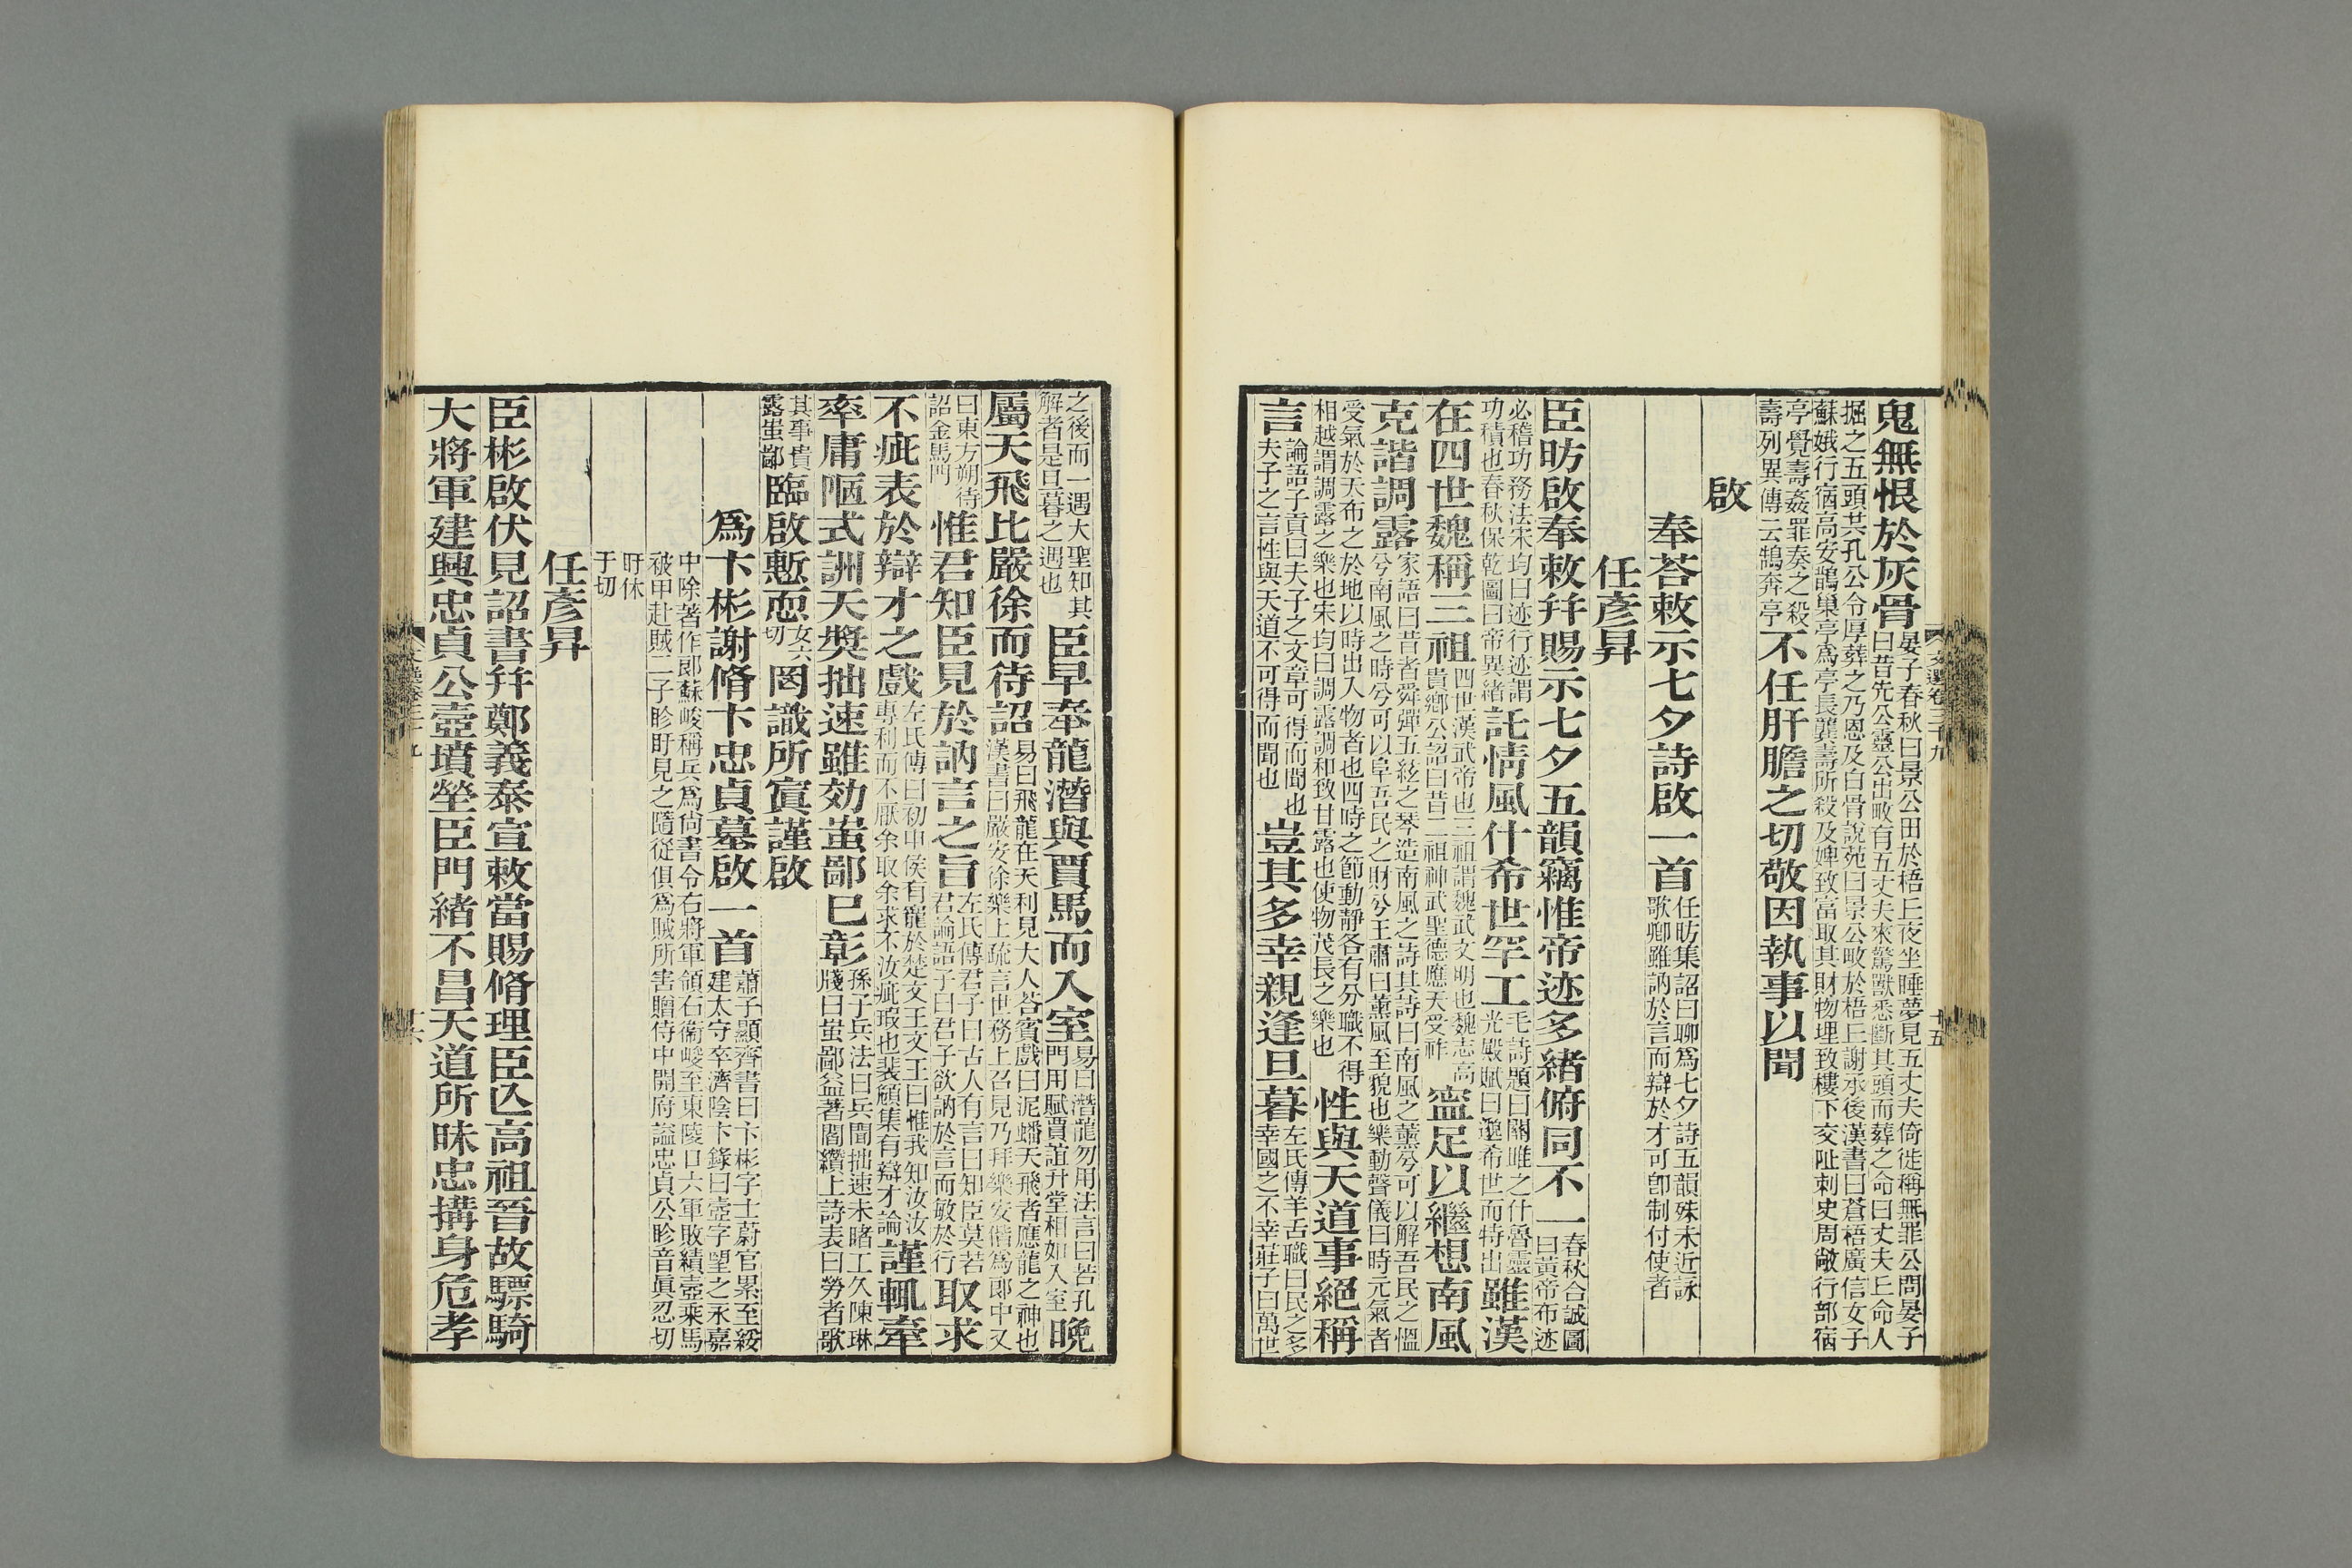 鬼無恨於灰骨晏子春秋曰景公田於梧丘夜坐睡夢見五丈夫倚徙稱無罪公問晏子
曰昔先公靈公出畋有五丈夫來驚獸悉斷其頭而葬之命曰丈夫丘命人
掘之五頭共孔公令厚葬之乃恩及白骨說苑曰景公畋於梧丘謝承後漢書曰蒼梧廣信女子
蘇娥行宿高安鵲巢亭爲亭長龔壽所殺及婢致富取其財物埋致樓下交阯刺史周敞行部宿
亭覺壽姦罪奏之殺
壽列異傳云鵠奔亭不任肝膽之切敬因執事以聞
啟
奉荅敕示七夕詩啟一首任昉集詔曰聊爲七夕詩五韻殊未近詠
歌卿雖訥於言而辯於才可卽制付使者
任彥昇
臣昉啟奉敕幷賜示七夕五韻竊惟帝迹多緒俯同不一春秋合誠圖
曰黃帝布迹
必稽功務法宋均曰迹行迹謂
功積也春秋保乾圖曰帝異緒託情風什希世罕工毛詩題曰關雎之什魯靈
光殿賦曰邈希世而特出雖漢
在四世魏稱三祖四世漢武帝也三祖謂魏武文明也魏志高
貴鄉公詔曰昔二祖神武聖德應天受祚寧足以繼想南風
克諧調露家語曰昔者舜彈五絃之琴造南風之詩其詩曰南風之薰兮可以解吾民之慍
兮南風之時兮可以阜吾民之財兮王肅曰薰風至貌也樂動聲儀曰時元氣者
受氣於天布之於地以時出入物者也四時之節動靜各有分職不得
相越謂調露之樂也宋均曰調露調和致甘露也使物茂長之樂也性與天道事絕稱
言論語子貢曰夫子之文章可得而聞也
夫子之言性與天道不可得而聞也豈其多幸親逢旦暮左氏傳羊舌職曰民之多
幸國之不幸莊子曰萬世
之後而一遇大聖知其
解者是旦暮之遇也臣早奉龍潛與賈馬而入室易曰潛龍勿用法言曰若孔
門用賦賈誼升堂相如入室晚
屬天飛比嚴徐而待詔易曰飛龍在天利見大人荅賓戲曰泥蟠天飛者應龍之神也
漢書曰嚴安徐樂上疏言世務上召見乃拜樂安偕爲郎中又
曰東方朔待
詔金馬門惟君知臣見於訥言之旨左氏傳君子曰古人有言曰知臣莫若
君論語子曰君子欲訥於言而敏於行取求
不疵表於辯才之戲左氏傳曰初申侯有寵於楚文王文王曰惟我知汝汝
專利而不厭余取余求不汝疵瑕也裴頠集有辯才論謹輒牽
率庸陋式訓天獎拙速雖効蚩鄙已彰孫子兵法曰兵聞拙速未睹工久陳琳
牋曰蚩鄙益著閻纘上詩表曰勞者歌
其事貴
露蚩鄙臨啟慙恧女六
切罔識所寘謹啟
爲卞彬謝脩卞忠貞墓啟一首蕭子顯齊書曰卞彬字士蔚官累至綏
建太守卒濟陰卞錄曰壺字望之永嘉
中除著作郎蘇峻稱兵爲尙書令右將軍領右衞峻至東陵口六軍敗績壺乘馬
被甲赴賊二子眕盱見之隨從俱爲賊所害贈侍中開府諡忠貞公眕音眞忍切
盱休
于切
任彥昇
臣彬啟伏見詔書幷鄭義泰宣敕當賜脩理臣亾高祖晉故驃騎
大將軍建興忠貞公壺墳塋臣門緒不昌天道所昧忠搆身危孝
文選卷三十九
十五